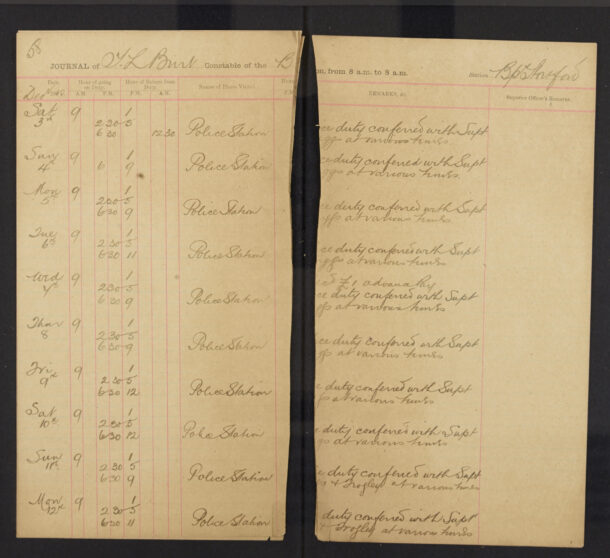 58
JOURNAL of T L Burr Constable of the B
, from 8 a.m. to 8 a.m. Station B p Stortford
Date. Hours of going on Duty. Hours of Return from Duty. Name of Place Visited. REMARKS, &c. Superior Officer's Remarks.
A.M. P.M. P.M. A.M.
Sat 9 1
3rd 2 30 5
6 30 12 30 Police Station ce duty conferred with Supt
at various times
Sun 9 1
4th 6 9 Police Station ce duty conferred with Supt
at various times
Mon 9 1
5th 2 30 5
6 30 9 Police Station ce duty conferred with Supt
at various times
Tue 9 1
6th 2 30 5
6 30 11 Police Station ce duty conferred with Supt
at various times
Wed 9 1 £1 advance Pay
7th 2 30 5 ce duty conferred with Supt
6 30 9 Police Station at various times
Thur 9 1
8 2 30 5
6 30 9 Police Station ce duty conferred with Supt
at various times
Fri 9 1
9th 2 30 5
6 30 12 Police Station duty conferred with Supt
at various times
Sat 9 1
10th 2 30 5
6 30 12 Police Station duty conferred with Supt
at various times
Sun 9 1
11th 2 30 5
6 30 9 Police Station duty conferred with Supt
& Frogley at various times
Mon 9 1
12th 2 30 5
6 30 11 Police Station duty conferred with Supt
& Frogley at various times